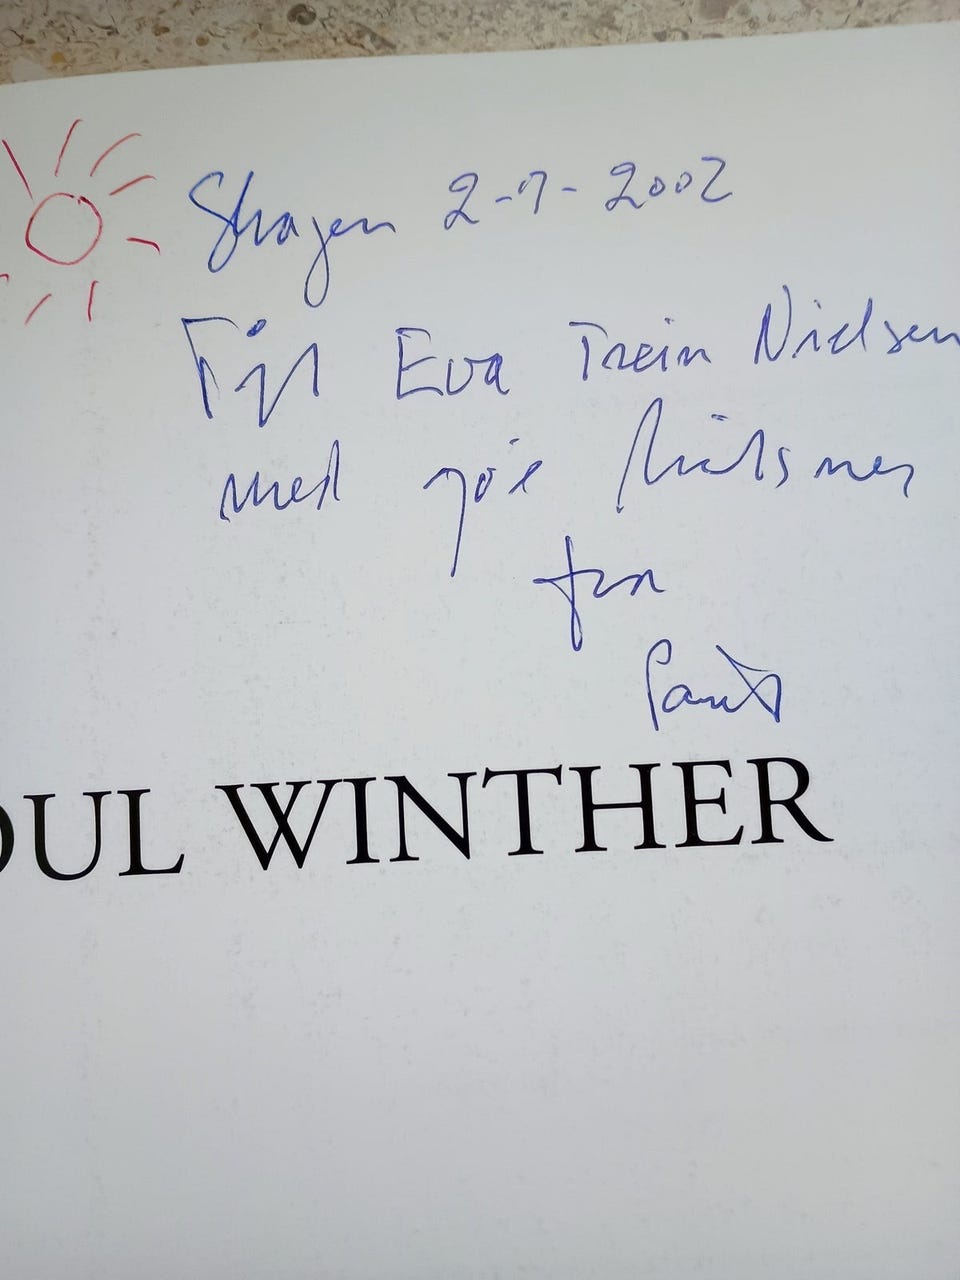 Skagen 2-7-2002
Til Eva Trein Nielsen
med gode hilsner
fra
Poul
OUL WINTHER